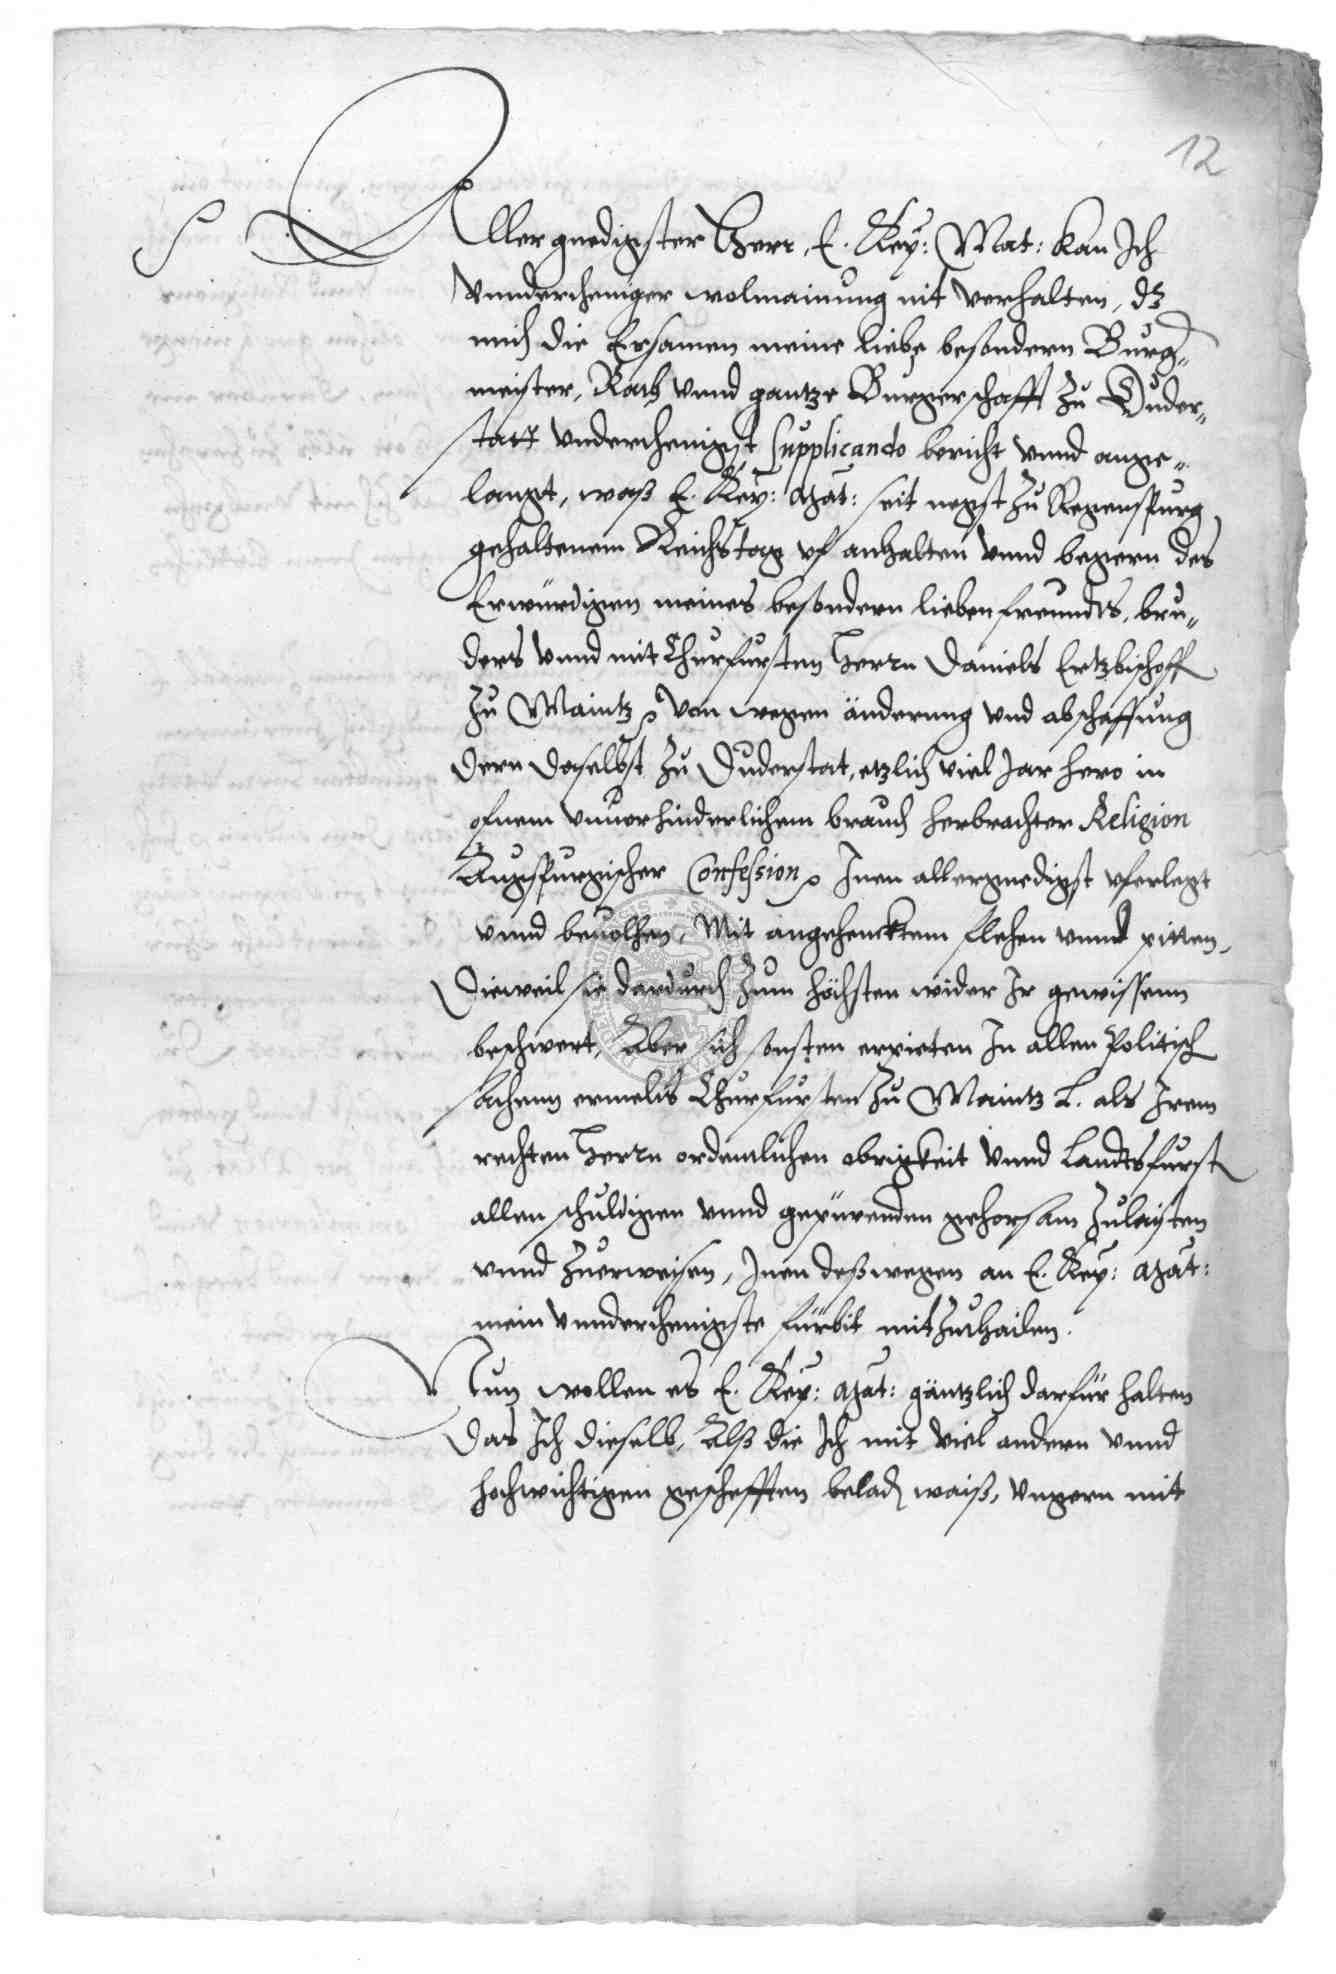 12
Allergnedigster Herr, E. Key: Mat: kan Ich
vnnderthenigor wolmainung nit verhalten, dz
mich die Ersamen meine liebe besondern Burg„
meister, Rath vnnd gantze Burgerschafft zu Duder„
statt vnderthenigst supplicando bericht vnnd ange„
langt, waß E. Key: Mat: seit negst zu Regenspurg
gehaltenem Reichstag vf anhalten vnnd begern des
Erwürdigen meines besondern lieben freundts, bru„
ders vnnd mit Churfursten Herrn Daniels Ertzbischoff
zu Maintz von wegen änderung vnd abschaffung
dern daselbst zu Duderstat, etzlich viel Jar hero in
ofnem vnuerhinderlichem brauch herbrachter Religion
Augspurgischer Confession Inen allergnedigst vferlegt
vnnd beuolhen, Mit angehencktem flehen vnnd pitten,
Dieweil sie dardurch zum höchsten wider Ir gewissenn
beschwert, Aber sich sonsten erpieten In allen Politisch
sachenn ermelts Churfursten zu Maintz L. als Irem
rechten Herrn ordenlichen obrigkeit vnnd Landtsfurst
allen schuldigen vnnd gepürenden gehorsam zulaisten
vnnd zuerweisen, Inen deßwegen an E. Key: Mat:
mein vnnderthenigste fürbit mitzuthailen.
Nun wollen es E. Key: Mat: gäntzlich darfür halten
Das Ich dieselb, Alß die Ich mit viel andern vnnd
hochwichtigen geschefften belad waiß, vngern mit